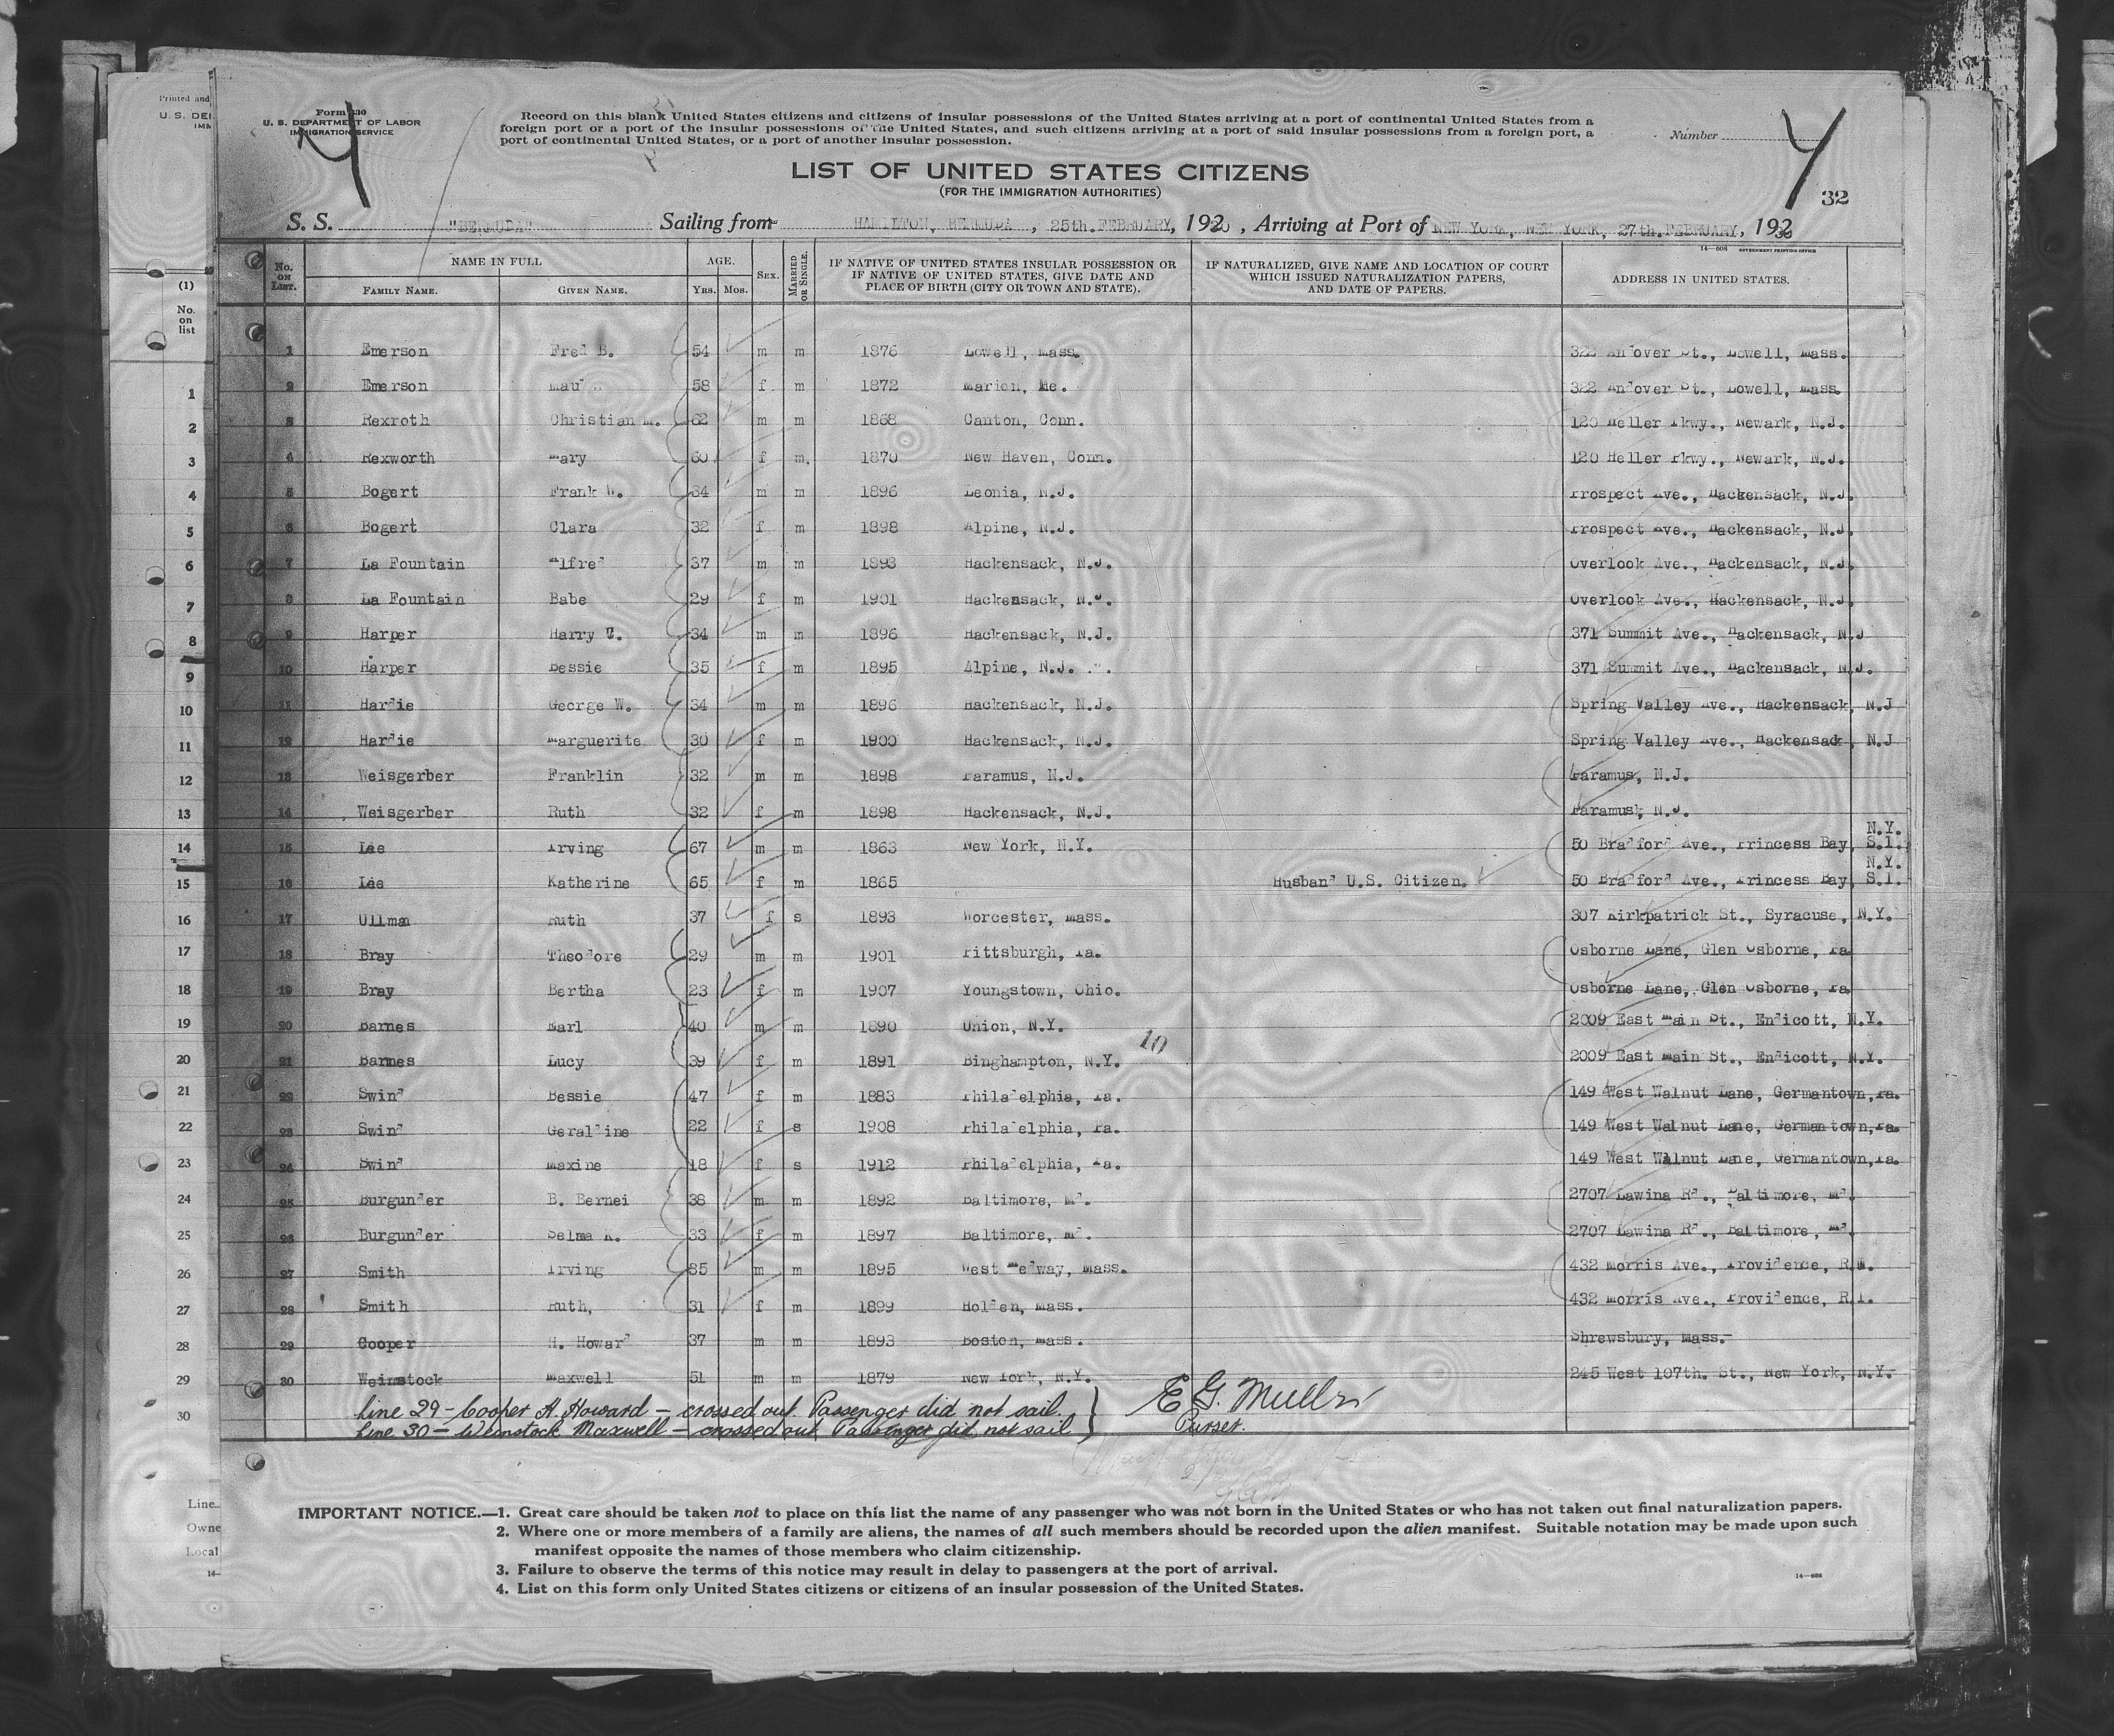 Printed and
U. S. DEI
IMM
(1)
No.
on
list
1
2
3
4
5
6
7
8
9
10
11
12
13
14
15
16
17
18
19
20
21
22
23
24
25
26
27
28
29
30
Line
Owne
Local
14—
Form 630
U. S. DEPARTMENT OF LABOR
IMMIGRATION SERVICE
Record on this blank United States citizens and citizens of insular possessions of the United States arriving at a port of continental United States from a
foreign port or a port of the insular possessions of the United States, and such citizens arriving at a port of said insular possessions from a foreign port, a
port of continental United States, or a port of another insular possession.
Number
4
4
32
LIST OF UNITED STATES CITIZENS
(FOR THE IMMIGRATION AUTHORITIES)
S. S. "BERMUDA" Sailing from HAMILTON, BERMUDA, 25th. FEBRUARY, 1930, Arriving at Port of NEW YORK, NEW YORK, 27th. FEBRUARY, 1930
14—608 GOVERNMENT PRINTING OFFICE
No. on List. NAME IN FULL FAMILY NAME. GIVEN NAME. AGE. YRS. MOS. SEX. MARRIED OR SINGLE. IF NATIVE OF UNITED STATES INSULAR POSSESSION OR IF NATIVE OF UNITED STATES, GIVE DATE AND PLACE OF BIRTH (CITY OR TOWN AND STATE). IF NATURALIZED, GIVE NAME AND LOCATION OF COURT WHICH ISSUED NATURALIZATION PAPERS, AND DATE OF PAPERS. ADDRESS IN UNITED STATES.
1 Emerson Fred B. 54 m m 1876 Lowell, Mass. 322 Andover St., Lowell, Mass.
2 Emerson Maud 58 f m 1872 Marion, Me. 322 Andover St., Lowell, Mass.
3 Rexroth Christian M. 62 m m 1868 Canton, Conn. 120 Heller Pkwy., Newark, N.J.
4 Rexworth Mary 60 f m. 1870 New Haven, Conn. 120 Heller Pkwy., Newark, N.J.
5 Bogert Frank W. 34 m m 1896 Leonia, N.J. Prospect Ave., Hackensack, N.J.
6 Bogert Clara 32 f m 1898 Alpine, N.J. Prospect Ave., Hackensack, N.J.
7 La Fountain Alfred 37 m m 1893 Hackensack, N.J. Overlook Ave., Hackensack, N.J.
8 La Fountain Babe 29 f m 1901 Hackensack, N.J. Overlook Ave., Hackensack, N.J.
9 Harper Harry 34 m m 1896 Hackensack, N.J. 371 Summit Ave., Hackensack, N.J
10 Harper Bessie 35 f m 1895 Alpine, N.J. 371 Summit Ave., Hackensack, N.J.
11 Hardie George W. 34 m m 1896 Hackensack, N.J. Spring Valley Ave., Hackensack, N.J
12 Hardie Marguerite 30 f m 1900 Hackensack, N.J. Spring Valley Ave., Hackensack, N.J
13 Weisgerber Franklin 32 m m 1898 Paramus, N.J. Paramus, N.J.
14 Weisgerber Ruth 32 f m 1898 Hackensack, N.J. Paramus, N.J.
15 Lee Irving 67 m m 1863 New York, N.Y. 50 Bradford Ave., Princess Bay, S.I. N.Y.
16 Lee Katherine 65 f m 1865 Husband U.S. Citizen. 50 Bradford Ave., Princess Bay, S.I. N.Y.
17 Ullman Ruth 37 f s 1893 Worcester, Mass. 307 Kirkpatrick St., Syracuse, N.Y.
18 Bray Theodore 29 m m 1901 Pittsburgh, Pa. Osborne Lane, Glen Osborne, Pa
19 Bray Bertha 23 f m 1907 Youngstown, Ohio. Osborne Lane, Glen Osborne, Pa
20 Barnes Earl 40 m m 1890 Union, N.Y. 2009 East Main St., Endicott, N.Y.
10
21 Barnes Lucy 39 f m 1891 Binghampton, N.Y. 2009 East Main St., Endicott, N.Y.
22 Swind Bessie 47 f m 1883 Philadelphia, Pa. 149 West Walnut Lane, Germantown, Pa.
23 Swind Geraldine 22 f s 1908 Philadelphia, Pa. 149 West Walnut Lane, Germantown, Pa.
24 Swind Maxine 18 f s 1912 Philadelphia, Pa. 149 West Walnut Lane, Germantown, Pa.
25 Burgunder B. Bernei 38 m m 1892 Baltimore, Md. 2707 Lawina Rd., Baltimore, Md.
26 Burgunder Selma K. 33 f m 1897 Baltimore, Md. 2707 Lawina Rd., Baltimore, Md.
27 Smith Irving 35 m m 1895 West Medway, Mass. 432 Morris Ave., Providence, R.I.
28 Smith Ruth, 31 f m 1899 Holden, Mass. 432 Morris Ave., Providence, R.I.
29 Cooper H. Howard 37 m m 1893 Boston, Mass. Shrewsbury, Mass.
30 Weinstock Maxwell 51 m m 1879 New York, N.Y. 245 West 107th. St., New York, N.Y.
Line 29 – Cooper H. Howard – crossed out. Passenger did not sail.
Line 30 – Weinstock Maxwell – crossed out. Passenger did not sail
E. G. Muller
Purser.
IMPORTANT NOTICE.—1. Great care should be taken not to place on this list the name of any passenger who was not born in the United States or who has not taken out final naturalization papers.
2. Where one or more members of a family are aliens, the names of all such members should be recorded upon the alien manifest. Suitable notation may be made upon such
manifest opposite the names of those members who claim citizenship.
3. Failure to observe the terms of this notice may result in delay to passengers at the port of arrival.
4. List on this form only United States citizens or citizens of an insular possession of the United States.
14—608